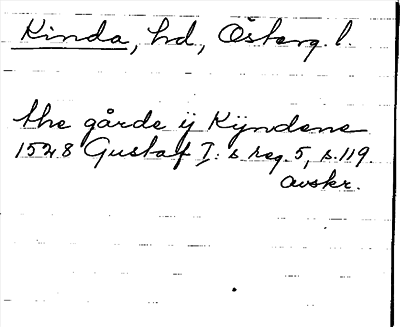 Kinda, hd, Österg. l.
the gårde ij Kÿndene
1528 Gustaf I: s reg. 5, s. 119.
avskr.